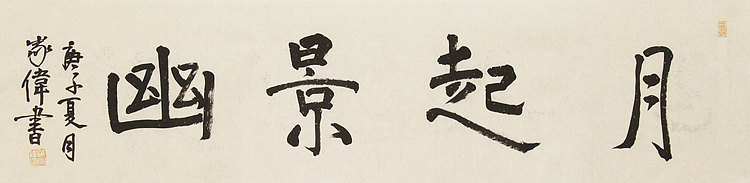 月起景幽
庚子夏月
家偉書